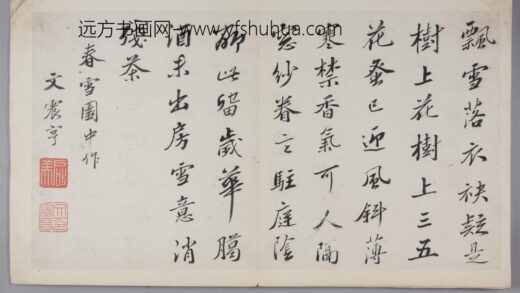 远方书画网——www.yfshuhua.com
飄雪落衣袂疑是
樹上花樹上三五
花蚤已迎風斜薄
寒禁香氣可人隔
窓紗眷言駐庭陰
聊此留歲華臈
酒未出房雪意消
殘茶
春雪園中作
文震亨